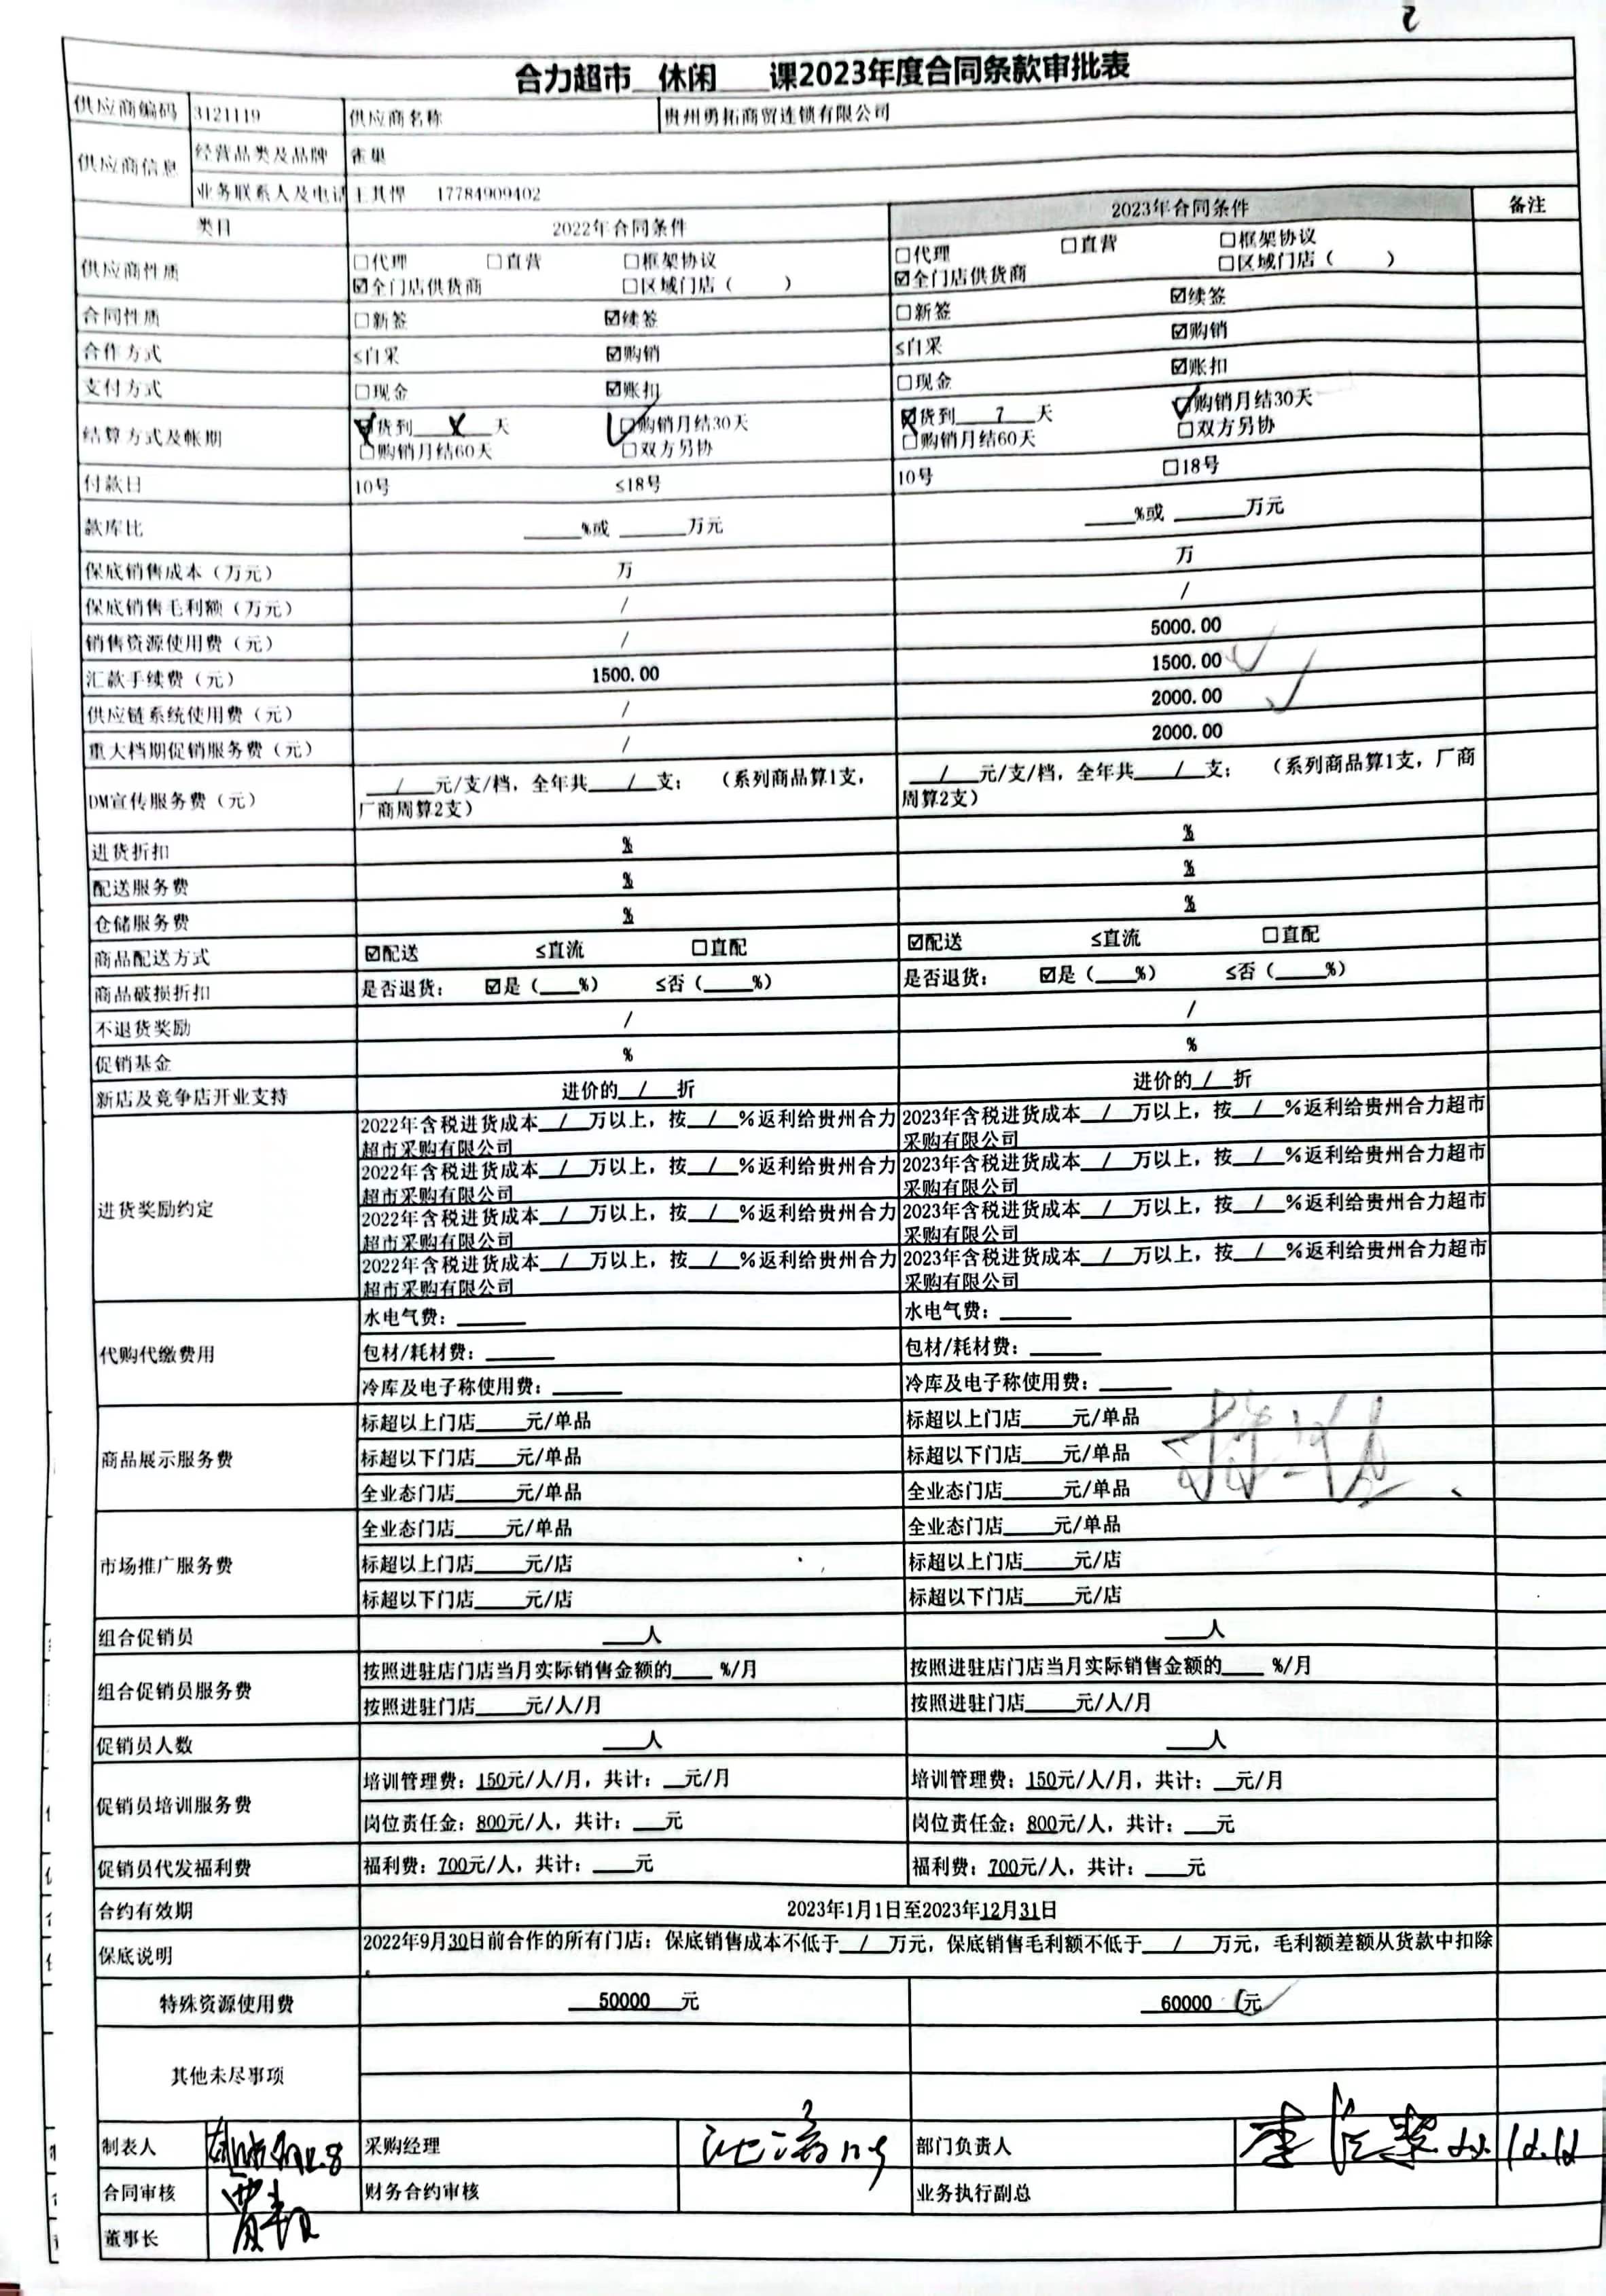 合力超市 休闲 课2023年度合同条款审批表
供应商编码 3121119 供应商名称 贵州勇拓商贸连锁有限公司
供应商信息 经营品类及品牌 雀巢
业务联系人及电话 王其悍 17784909402
类目 2022年合同条件 2023年合同条件 备注
供应商性质 □代理 □直营 □框架协议 □代理 □直营 □框架协议
☑全门店供货商 □区域门店（ ） ☑全门店供货商 □区域门店（ ）
合同性质 □新签 ☑续签 □新签 ☑续签
合作方式 ≤自采 ☑购销 ≤自采 ☑购销
支付方式 □现金 ☑账扣 □现金 ☑账扣
结算方式及帐期 ☑货到____天 □购销月结30天 ☑货到__7__天 □购销月结30天
□购销月结60天 □双方另协 □购销月结60天 □双方另协
付款日 10号 ≤18号 10号 □18号
款库比 ____%或____万元 ____%或____万元
保底销售成本（万元） 万 万
保底销售毛利额（万元） / /
销售资源使用费（元） / 5000.00
汇款手续费（元） 1500.00 1500.00
供应链系统使用费（元） / 2000.00
重大档期促销服务费（元） / 2000.00
DM宣传服务费（元） __/__元/支/档，全年共__/__支； （系列商品算1支，厂商周算2支） __/__元/支/档，全年共__/__支； （系列商品算1支，厂商周算2支）
进货折扣 % %
配送服务费 % %
仓储服务费 % %
商品配送方式 ☑配送 ≤直流 □直配 ☑配送 ≤直流 □直配
商品破损折扣 是否退货： ☑是（___%） ≤否（____%） 是否退货： ☑是（___%） ≤否（____%）
不退货奖励 / /
促销基金 % %
新店及竞争店开业支持 进价的__/__折 进价的__/__折
进货奖励约定 2022年含税进货成本__/__万以上，按__/__%返利给贵州合力超市采购有限公司 2023年含税进货成本__/__万以上，按__/__%返利给贵州合力超市采购有限公司
2022年含税进货成本__/__万以上，按__/__%返利给贵州合力超市采购有限公司 2023年含税进货成本__/__万以上，按__/__%返利给贵州合力超市采购有限公司
2022年含税进货成本__/__万以上，按__/__%返利给贵州合力超市采购有限公司 2023年含税进货成本__/__万以上，按__/__%返利给贵州合力超市采购有限公司
2022年含税进货成本__/__万以上，按__/__%返利给贵州合力超市采购有限公司 2023年含税进货成本__/__万以上，按__/__%返利给贵州合力超市采购有限公司
代购代缴费用 水电气费：____ 水电气费：____
包材/耗材费：____ 包材/耗材费：____
冷库及电子称使用费：____ 冷库及电子称使用费：____
商品展示服务费 标超以上门店____元/单品 标超以上门店____元/单品
标超以下门店____元/单品 标超以下门店____元/单品
全业态门店____元/单品 全业态门店____元/单品
市场推广服务费 全业态门店____元/单品 全业态门店____元/单品
标超以上门店____元/店 标超以上门店____元/店
标超以下门店____元/店 标超以下门店____元/店
组合促销员 ____人 ____人
组合促销员服务费 按照进驻店门店当月实际销售金额的____ %/月 按照进驻店门店当月实际销售金额的____ %/月
按照进驻门店____元/人/月 按照进驻门店____元/人/月
促销员人数 ____人 ____人
促销员培训服务费 培训管理费：150元/人/月，共计：__元/月 培训管理费：150元/人/月，共计：__元/月
岗位责任金：800元/人，共计：___元 岗位责任金：800元/人，共计：___元
促销员代发福利费 福利费：700元/人，共计：____元 福利费：700元/人，共计：____元
合约有效期 2023年1月1日至2023年12月31日
保底说明 2022年9月30日前合作的所有门店：保底销售成本不低于__/__万元，保底销售毛利额不低于__/__万元，毛利额差额从货款中扣除
特殊资源使用费 50000 元 60000 元
其他未尽事项
制表人 采购经理 部门负责人
合同审核 财务合约审核 业务执行副总
董事长